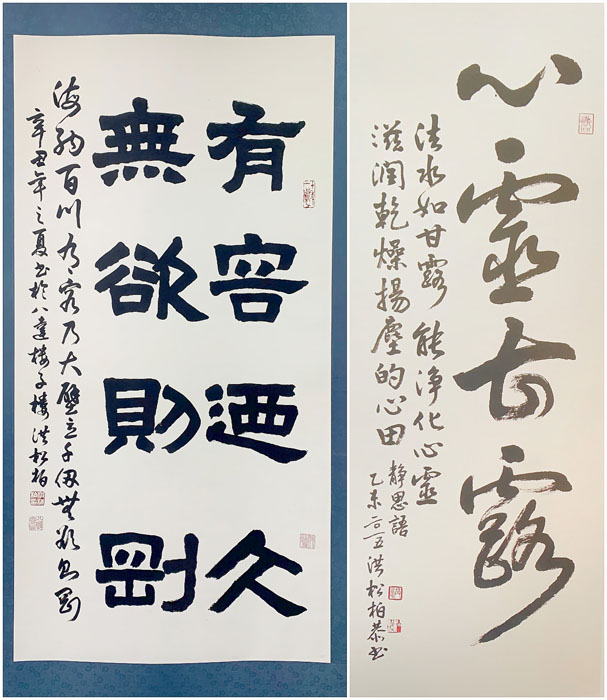 有容迺大
無欲則剛
海納百川有容乃大壁立千仞無欲則剛
辛丑年之夏書於八達樓子樓洪松柏
心靈甘露
法水如甘露 能淨化心靈
滋潤乾燥揚塵的心田
靜思語
乙未二〇一五洪松柏恭書